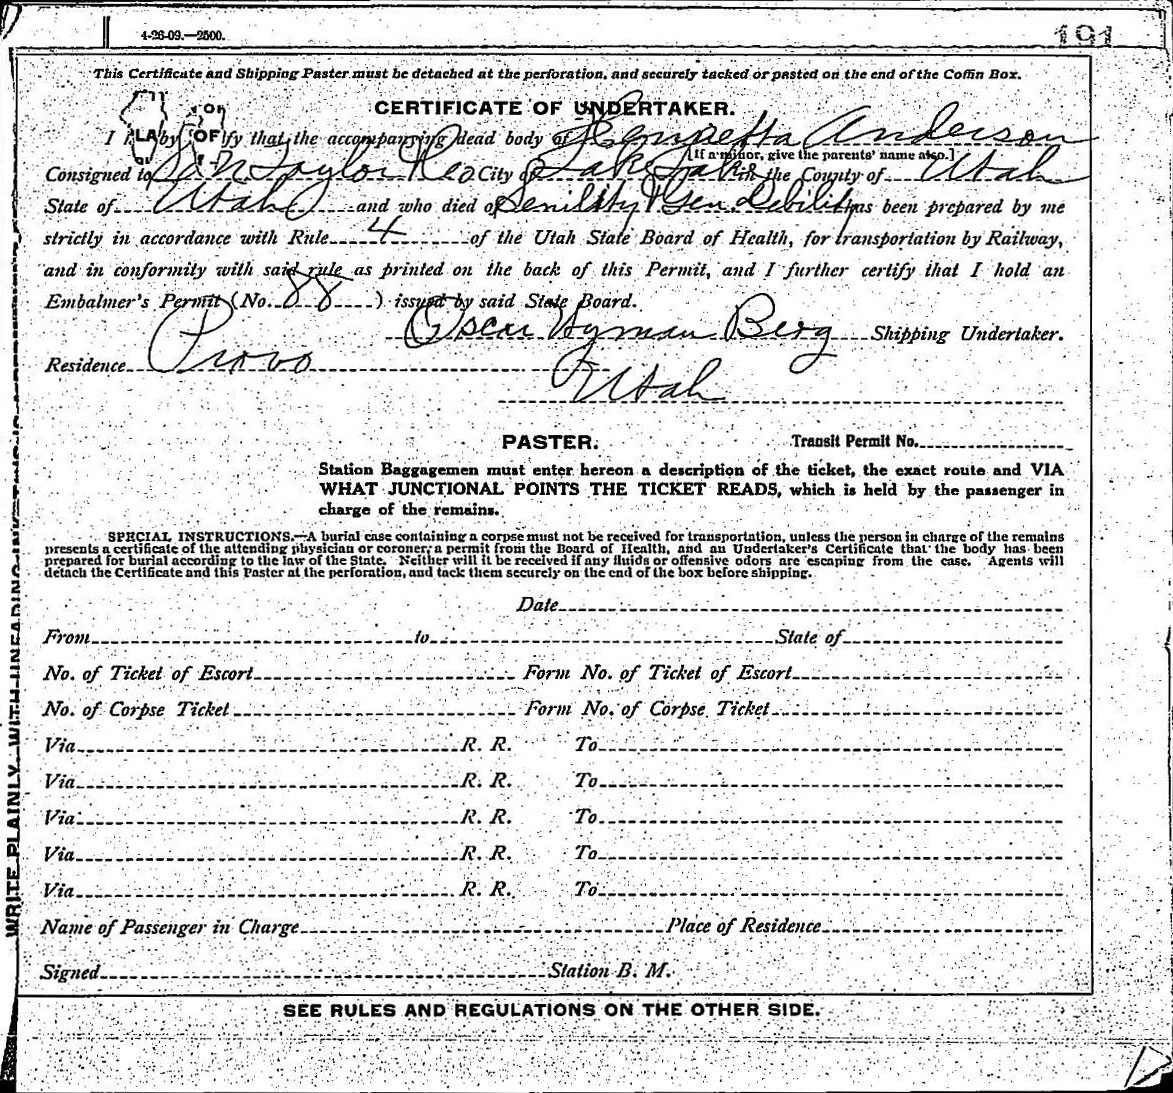 4-26-09.—2500.
191
This Certificate and Shipping Paster must be detached at the perforation, and securely tacked or pasted on the end of the Coffin Box.
CERTIFICATE OF UNDERTAKER.
I by that the accompanying dead body of Henrietta Anderson
[If a minor, give the parents' name also.]
Consigned to Taylor City of Salt Lake in the County of Utah
State of Utah and who died of Senility & Gen. Debility has been prepared by me
strictly in accordance with Rule 4 of the Utah State Board of Health, for transportation by Railway,
and in conformity with said rule as printed on the back of this Permit, and I further certify that I hold an
Embalmer's Permit (No. 88 ) issued by said State Board.
Oscar Hyman Berg Shipping Undertaker.
Residence Provo
Utah
PASTER. Transit Permit No.
Station Baggagemen must enter hereon a description of the ticket, the exact route and VIA
WHAT JUNCTIONAL POINTS THE TICKET READS, which is held by the passenger in
charge of the remains.
SPECIAL INSTRUCTIONS.—A burial case containing a corpse must not be received for transportation, unless the person in charge of the remains
presents a certificate of the attending physician or coroner, a permit from the Board of Health, and an Undertaker's Certificate that the body has been
prepared for burial according to the law of the State. Neither will it be received if any fluids or offensive odors are escaping from the case. Agents will
detach the Certificate and this Paster at the perforation, and tack them securely on the end of the box before shipping.
Date
From to State of
No. of Ticket of Escort Form No. of Ticket of Escort
No. of Corpse Ticket Form No. of Corpse Ticket
Via R. R. To
Via R. R. To
Via R. R. To
Via R. R. To
Via R. R. To
Name of Passenger in Charge Place of Residence
Signed Station B. M.
SEE RULES AND REGULATIONS ON THE OTHER SIDE.
WRITE PLAINLY WITH UNFADING INK